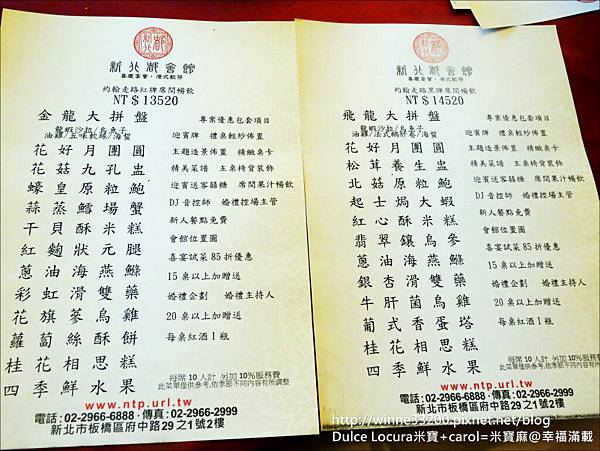 新北都會館
喜慶宴會‧港式飲茶
約翰走路紅牌席間暢飲
NT $ 13520
金龍大拼盤
龍蝦沙拉/烏魚子
油雞/五味軟絲/海蜇
花好月團圓
花菇九孔盅
蠔皇原粒鮑
蒜蒸鱈場蟹
干貝酥米糕
紅麴狀元腿
蔥油海燕鱂
彩虹滑雙藥
花旗蔘烏雞
蘿蔔絲酥餅
桂花相思糕
四季鮮水果
專案優惠包套項目
迎賓牌 禮桌輕紗佈置
主題造景佈置 精緻桌卡
精美菜譜 主桌椅背裝飾
迎賓送客囍糖 席間果汁暢飲
DJ音控師 婚禮控場主管
新人餐點免費
會館位置圖
喜宴試菜85折優惠
15桌以上加贈送
婚禮企劃 婚禮主持人
20桌以上加贈送
每桌紅酒1瓶
每席 10 人計 另加 10%服務費
此菜單僅供參考,依季節不同內容有所調整
www.ntp.url.tw
電話:02-2966-6888‧傳真:02-2966-2999
新北市板橋區府中路29之1號2樓
新北都會館
喜慶宴會‧港式飲茶
約翰走路黑牌席間暢飲
NT $ 14520
飛龍大拼盤
龍蝦沙拉/烏魚子
油雞/法式鵝肝凍/海蜇
花好月團圓
松茸養生盅
北菇原粒鮑
起士焗大蝦
紅心酥米糕
翡翠鑲烏參
蔥油海燕鱂
銀杏滑雙藥
牛肝菌烏雞
葡式香蛋塔
桂花相思糕
四季鮮水果
專案優惠包套項目
迎賓牌 禮桌輕紗佈置
主題造景佈置 精緻桌卡
精美菜譜 主桌椅背裝飾
迎賓送客囍糖 席間果汁暢飲
DJ音控師 婚禮控場主管
新人餐點免費
會館位置圖
喜宴試菜85折優惠
15桌以上加贈送
婚禮企劃 婚禮主持人
20桌以上加贈送
每桌紅酒1瓶
每席 10 人計 另加 10%服務費
此菜單僅供參考,依季節不同內容有所調整
www.ntp.url.tw
電話:02-2966-6888‧傳真:02-2966-2999
新北市板橋區府中路29之1號2樓
http://winne33200.pixnet.net/blog
Dulce Locura米寶+carol=米寶麻@幸福滿載